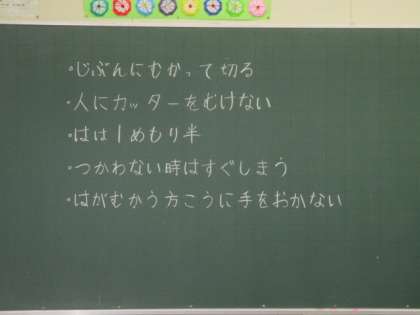 ・じぶんにむかって切る
・人にカッターをむけない
・はは1めもり半
・つかわない時はすぐしまう
・はがむかう方こうに手をおかない